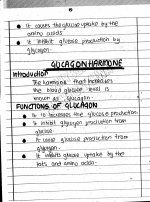 It causes the glucose uptake by the
amino acids
It inhibit glucose production by
glycogen.
GLUCAGON HARMONE
Introduction
The harmone that increases
the blood glucose level is
known as glucagon.
FUNCTIONS OF GLUCAGON
It increases the glucose production.
It inhibit glycogen production from
glucose.
It cause glucose production from
glycogen.
It inhibits glucose uptake by the
fats and amino acids.